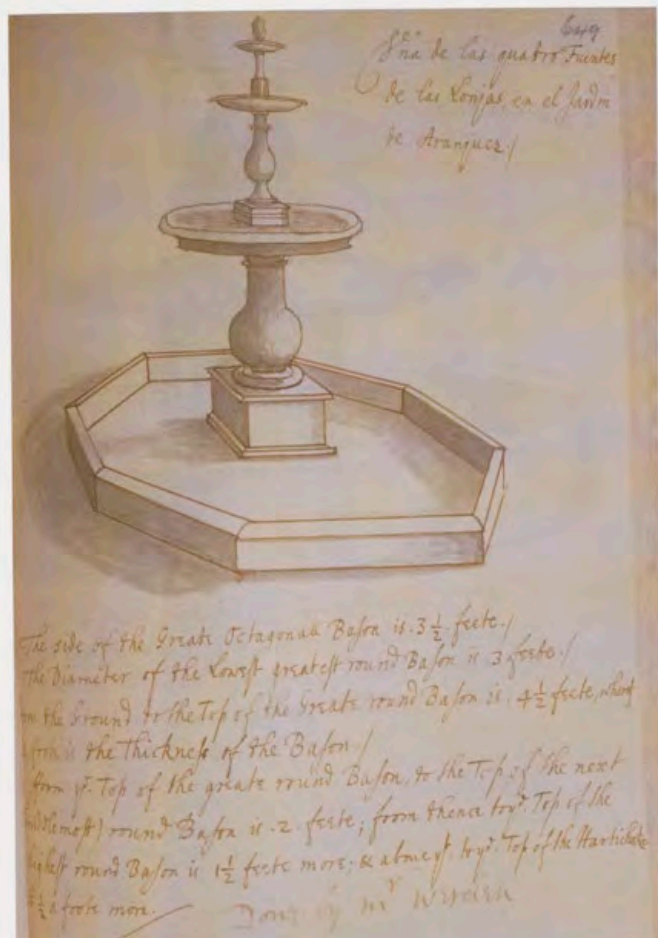 de las quatro Fuentes
de las Lonjas, en el Jardin
de Aranjuez./
The side of the Greate Octagonall Bason is 3 1/2 feete./
the Diameter of the Lowest greatest round Bason is 3 feete./
the Ground to the Top of the Greate round Bason is 4 1/2 feete, whereof
is the thickness of the Bason./
from yͤ Top of the greate round Bason, to the Top of the next
round Bason is 2 feete; from thence to yͤ Top of the
highest round Bason is 1 1/2 feete more; & to yͤ Top of the Hartichoke
1/2 a foote more.
Done by mͬ